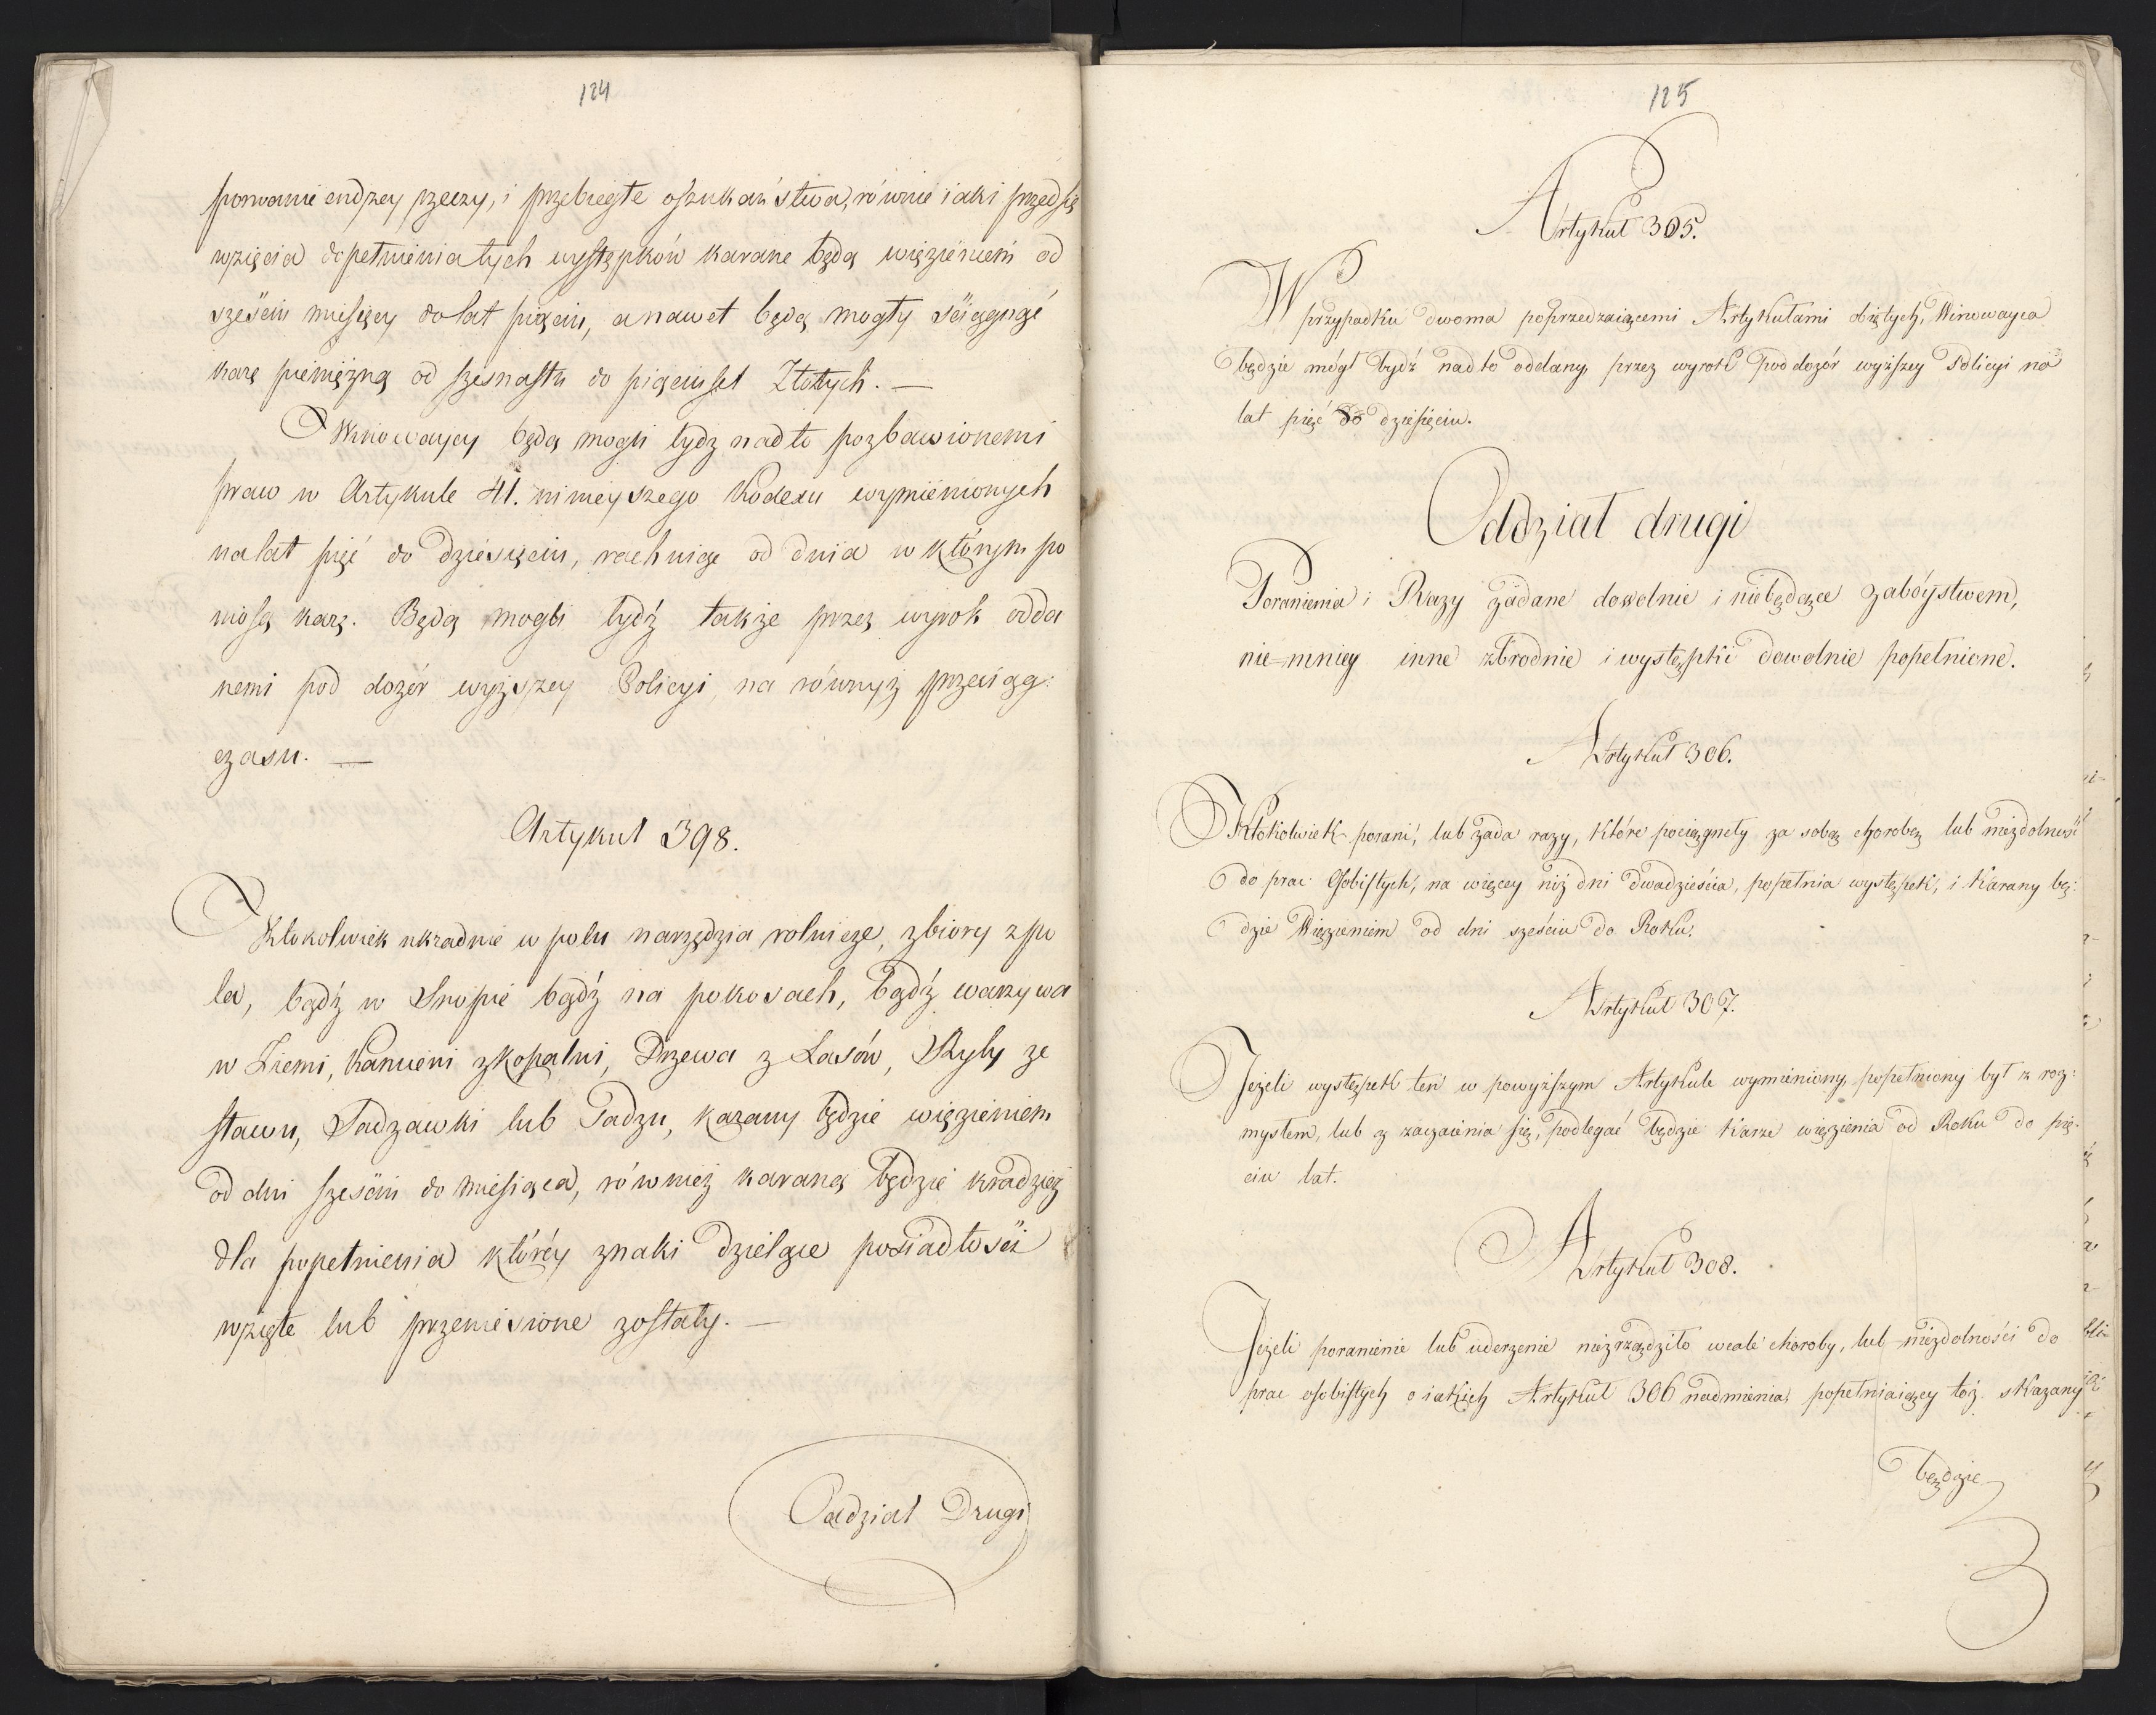 124
porwanie cudzey rzeczy, i przebiegłe oszukaństwa, równie iak i przedsię
wzięcia dopełnienia tych występków karane będą więzieniem od
sześciu miesięcy do lat pięciu, a nawet będą mogły ściągnąć
karę pieniężną od szesnastu do pięciuset Złotych. —
Winowaycy będą mogli bydz nadto pozbawionemi
praw w Artykule 41. ninieyszego Kodexu wymienionych
na lat pięć do dziesięciu, rachuiąc od dnia w którym po
niosą karę. Będą mogli bydź także przez wyrok odda
nemi pod dozór wyższey Policyi, na równyż przeciąg:
czasu. —
Artykuł 398.
Ktokolwiek ukradnie w polu narzędzia rolnicze, zbiory z po
la, bądź w Snopie bądź na pokosach, bądź warzywa
w Ziemi, Kamieni z kopalni, Drzewa z Lasów, Ryby ze
stawu, Sadzawki lub Sadzu, karany będzie więzieniem
od dni sześciu do miesiąca, równiéż karaną będzie kradzież
dla popełnienia któréy znaki dzielące posiadłości
wzięte lub przeniesione zostały. —
Oddział Drugi
125
Artykuł 305.
W przypadku dwoma poprzedzaiącemi Artykułami obiętych, Winowayca
będzie mógł bydź nad to oddany, przez wyrok pod dozór wyższey Policyi na
lat pięć do dziesięciu.
Oddział drugi
Poranienia i Razy zadane dowolnie i niebędące zabóystwem,
nie mniey inne zbrodnie i występki dowolnie popełnione.
Artykuł 306.
Ktokolwiek porani, lub zada razy, które pociągnęły za sobą chorobę lub niezdolność
do prac Osobistych, na więcey niż dni dwadzieścia, popełnia występek, i karany bę:
dzie Więzieniem od dni sześciu do Roku.
Artykuł 307.
Jeżeli występek ten w powyższym Artykule wymieniony, popełniony był z roz:
mysłem, lub z zaczaienia się, podlegać będzie karze więzienia od Roku do pię-
ciu lat.
Artykuł 308.
Jeżeli poranienie lub uderzenie niezrządziło wcale choroby, lub niezdolności do
prac osobistych o iakich Artykuł 306 nadmienia, popełniaiący toż skazany
będzie